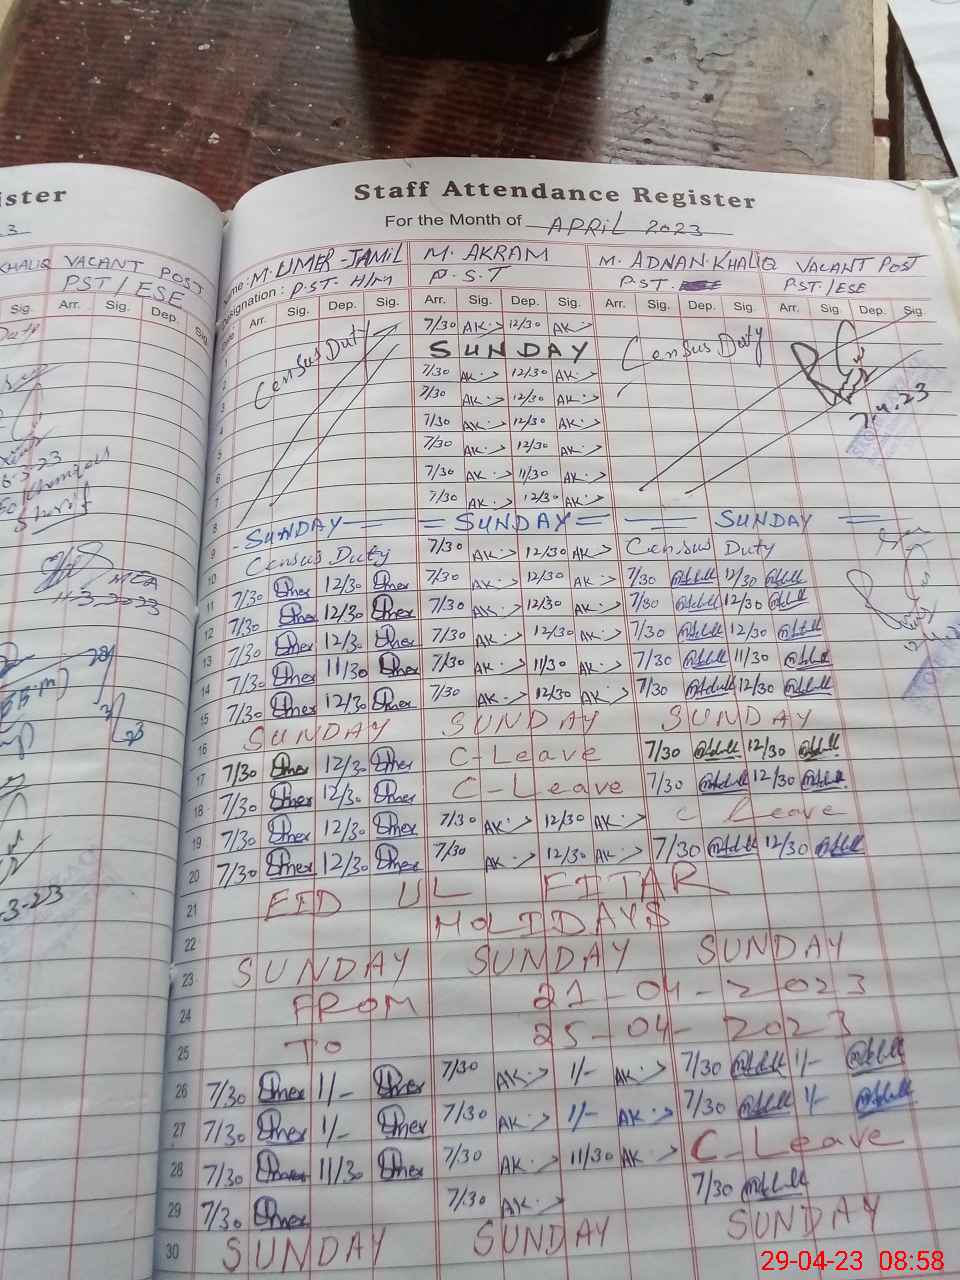 ister
Staff Attendance Register
For the Month of APRIL 2023
KHALIQ VACANT POST
PST / ESE
Sig. Arr. Sig. Dep. Sig.
me: M. UMER-JAMIL M. AKRAM M. ADNAN KHALIQ VACANT POST
esignation: P.S.T. H/M P.S.T PST. PST./ESE
Arr. Sig. Dep. Sig. Arr. Sig. Dep. Sig. Arr. Sig. Dep. Sig. Arr. Sig. Dep. Sig.
1 Census Duty 7/30 AK 12/30 AK Census Duty
2 SUNDAY
3 7/30 AK 12/30 AK
4 7/30 AK 12/30 AK
5 7/30 AK 12/30 AK 7.4.23
6 7/30 AK 12/30 AK
7 7/30 AK 11/30 AK
8 7/30 AK 12/30 AK
9 -SUNDAY- = SUNDAY = SUNDAY =
10 Census Duty 7/30 AK 12/30 AK Census Duty
11 7/30 Umer 12/30 Umer 7/30 AK 12/30 AK 7/30 12/30
12 7/30 Umer 12/30 Umer 7/30 AK 12/30 AK 7/30 12/30
13 7/30 Umer 12/30 Umer 7/30 AK 12/30 AK 7/30 12/30
14 7/30 Umer 11/30 Umer 7/30 AK 11/30 AK 7/30 11/30
15 7/30 Umer 12/30 Umer 7/30 AK 12/30 AK 7/30 12/30
16 SUNDAY SUNDAY SUNDAY
17 7/30 Umer 12/30 Umer C-Leave 7/30 12/30
18 7/30 Umer 12/30 Umer C-Leave 7/30 12/30
19 7/30 Umer 12/30 Umer 7/30 AK 12/30 AK C Leave
20 7/30 Umer 12/30 Umer 7/30 AK 12/30 AK 7/30 12/30
21 EID UL FITAR
22 HOLIDAYS
23 SUNDAY SUNDAY SUNDAY
24 FROM 21-04-2023
25 TO 25-04-2023
26 7/30 Umer 1/- Umer 7/30 AK 1/- AK 7/30 1/-
27 7/30 Umer 1/- Umer 7/30 AK 1/- AK 7/30 1/-
28 7/30 Umer 11/30 Umer 7/30 AK 11/30 AK C-Leave
29 7/30 Umer 7/30 AK 7/30
30 SUNDAY SUNDAY SUNDAY
29-04-23 08:58